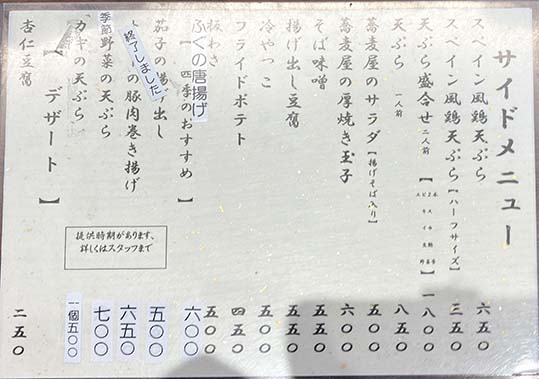 サイドメニュー
スペイン風鶏天ぷら 六五〇
スペイン風鶏天ぷら【ハーフサイズ】 三五〇
天ぷら盛合せ 二人前 一八〇〇
天ぷら 一人前 八五〇
蕎麦屋のサラダ【揚げそば入り】 六五〇
蕎麦屋の厚焼き玉子 六〇〇
そば味噌 五五〇
揚げ出し豆腐 五五〇
冷やっこ 五〇〇
フライドポテト 四五〇
板わさ 五〇〇
ふぐの唐揚げ 六〇〇
【四季のおすすめ】
茄子の揚げ出し 五〇〇
の豚肉巻き揚げ 六五〇
終了しました
季節野菜の天ぷら 七〇〇
カキの天ぷら 一個五〇〇
【デザート】
杏仁豆腐 二五〇
提供時期があります、
詳しくはスタッフまで